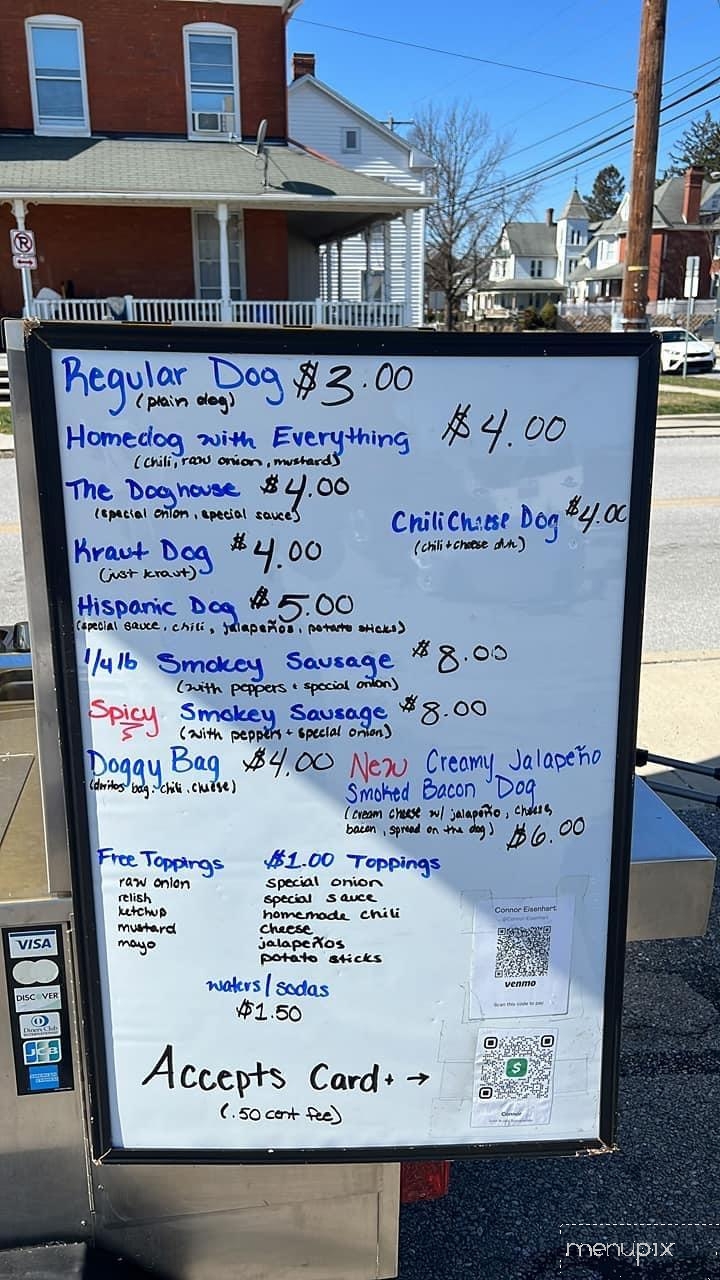 Regular Dog $3.00
(plain dog)
Homedog with Everything $4.00
(chili, raw onion, mustard)
The Doghouse $4.00
(special onion, special sauce)
Chili Cheese Dog $4.00
(chili + cheese duh)
Kraut Dog $4.00
(just kraut)
Hispanic Dog $5.00
(special sauce, chili, jalapeños, potato sticks)
1/4 lb Smokey Sausage $8.00
(with peppers + special onion)
Spicy Smokey Sausage $8.00
(with peppers + special onion)
Doggy Bag $4.00
(doritos bag, chili, cheese)
New Creamy Jalapeño
Smoked Bacon Dog
(cream cheese w/ jalapeño, cheese,
bacon, spread on the dog) $6.00
Free Toppings
raw onion
relish
ketchup
mustard
mayo
$1.00 Toppings
special onion
special sauce
homemade chili
cheese
jalapeños
potato sticks
waters/sodas
$1.50
Accepts Card + →
(.50 cent fee)
Connor Eisenhart
venmo
Scan this code to pay
$
Connor
VISA
DISCOVER
Diners Club
JCB
P
menupix